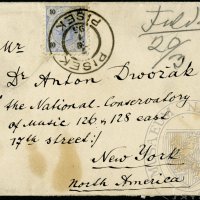 PISEK
PISEK
Mr
Dr Anton Dvořák
the National Conservatory
of Music 126 & 128 east
17th street:/
New York
North America
20/3